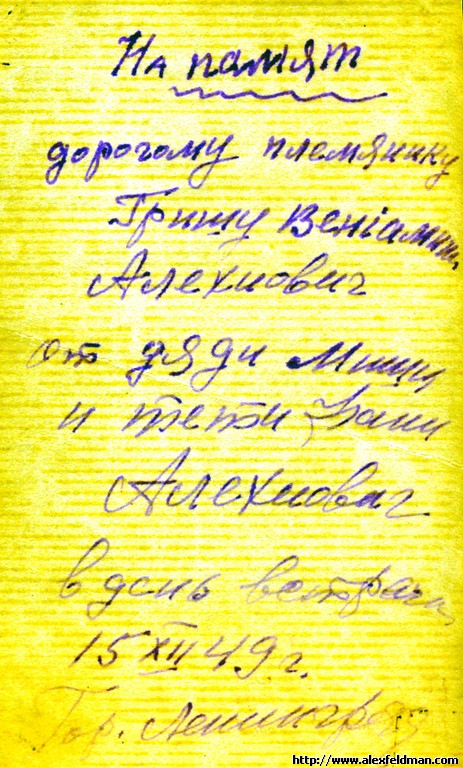 На памят
дорогому племянику
Гришу Веніамин
Алехнович
от дяди Миши
и тети Бани
Алехнович
в день встречи
15 XII 49 г.
Гор. Ленинград
http://www.alexfeldman.com